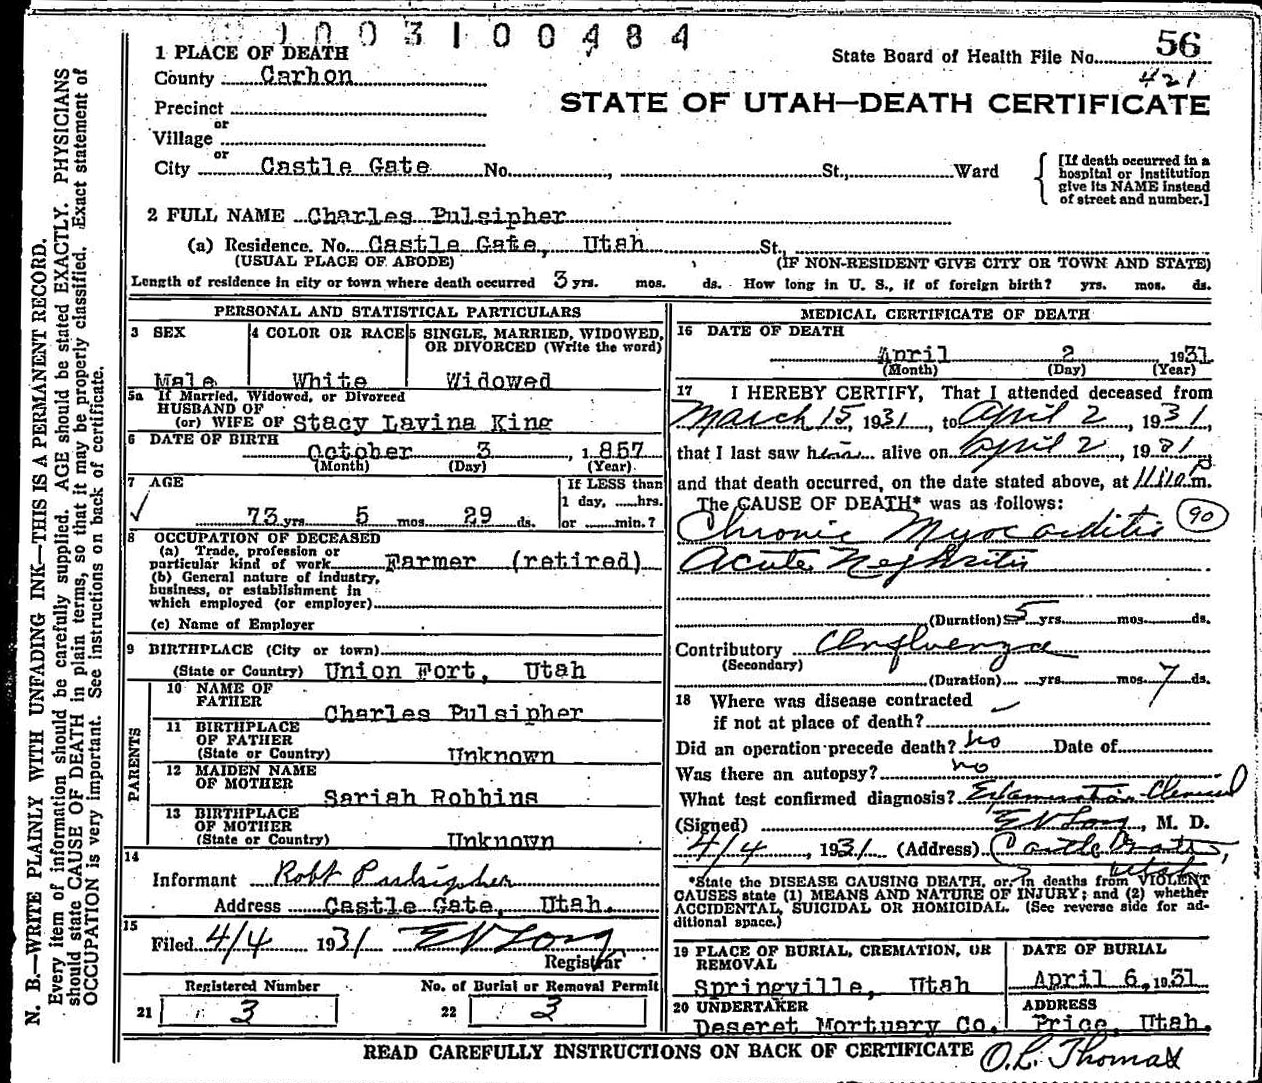 1003100484
State Board of Health File No. 56
421
1 PLACE OF DEATH
County Carbon
STATE OF UTAH—DEATH CERTIFICATE
Precinct
or
Village
or
City Castle Gate No. , St., Ward
[If death occurred in a hospital or institution give its NAME instead of street and number.]
2 FULL NAME Charles Pulsipher
(a) Residence. No. Castle Gate, Utah St.,
(USUAL PLACE OF ABODE) (IF NON-RESIDENT GIVE CITY OR TOWN AND STATE)
Length of residence in city or town where death occurred 3 yrs. mos. ds. How long in U. S., if of foreign birth? yrs. mos. ds.
PERSONAL AND STATISTICAL PARTICULARS
3 SEX 4 COLOR OR RACE 5 SINGLE, MARRIED, WIDOWED, OR DIVORCED (Write the word)
Male White Widowed
5a If Married, Widowed, or Divorced
HUSBAND OF
(or) WIFE OF Stacy Lavina King
6 DATE OF BIRTH
October 3, 1857
(Month) (Day) (Year)
7 AGE If LESS than
1 day, hrs.
73 yrs 5 mos 29 ds. or min.?
8 OCCUPATION OF DECEASED
(a) Trade, profession or
particular kind of work Farmer (retired)
(b) General nature of industry,
business, or establishment in
which employed (or employer)
(c) Name of Employer
9 BIRTHPLACE (City or town)
(State or Country) Union Fort, Utah
PARENTS
10 NAME OF
FATHER Charles Pulsipher
11 BIRTHPLACE
OF FATHER
(State or Country) Unknown
12 MAIDEN NAME
OF MOTHER Sariah Robbins
13 BIRTHPLACE
OF MOTHER
(State or Country) Unknown
14
Informant Robt Pulsipher
Address Castle Gate, Utah.
15
Filed 4/4 1931 E V Long
Registrar
Registered Number No. of Burial or Removal Permit
21 3 22 3
MEDICAL CERTIFICATE OF DEATH
16 DATE OF DEATH
April 2 1931
(Month) (Day) (Year)
17 I HEREBY CERTIFY, That I attended deceased from
March 15, 1931, to April 2, 1931,
that I last saw him alive on April 2, 1931
and that death occurred, on the date stated above, at 11:10 P m.
The CAUSE OF DEATH* was as follows:
Chronic Myocarditis 90
Acute Nephritis
(Duration) 5 yrs. mos. ds.
Contributory Influenza
(Secondary)
(Duration) yrs. mos. 7 ds.
18 Where was disease contracted
if not at place of death?
Did an operation precede death? no Date of
Was there an autopsy? no
What test confirmed diagnosis? Examination Clinical
(Signed) E V Long, M. D.
4/4, 1931 (Address) Castle Gate,
Utah
*State the DISEASE CAUSING DEATH, or, in deaths from VIOLENT
CAUSES state (1) MEANS AND NATURE OF INJURY; and (2) whether
ACCIDENTAL, SUICIDAL OR HOMICIDAL. (See reverse side for ad-
ditional space.)
19 PLACE OF BURIAL, CREMATION, OR REMOVAL DATE OF BURIAL
Springville, Utah April 6, 1931
20 UNDERTAKER ADDRESS
Deseret Mortuary Co. Price, Utah.
READ CAREFULLY INSTRUCTIONS ON BACK OF CERTIFICATE O. L. Thomas
N. B.—WRITE PLAINLY WITH UNFADING INK—THIS IS A PERMANENT RECORD.
Every item of information should be carefully supplied. AGE should be stated EXACTLY. PHYSICIANS
should state CAUSE OF DEATH in plain terms, so that it may be properly classified. Exact statement of
OCCUPATION is very important. See instructions on back of certificate.